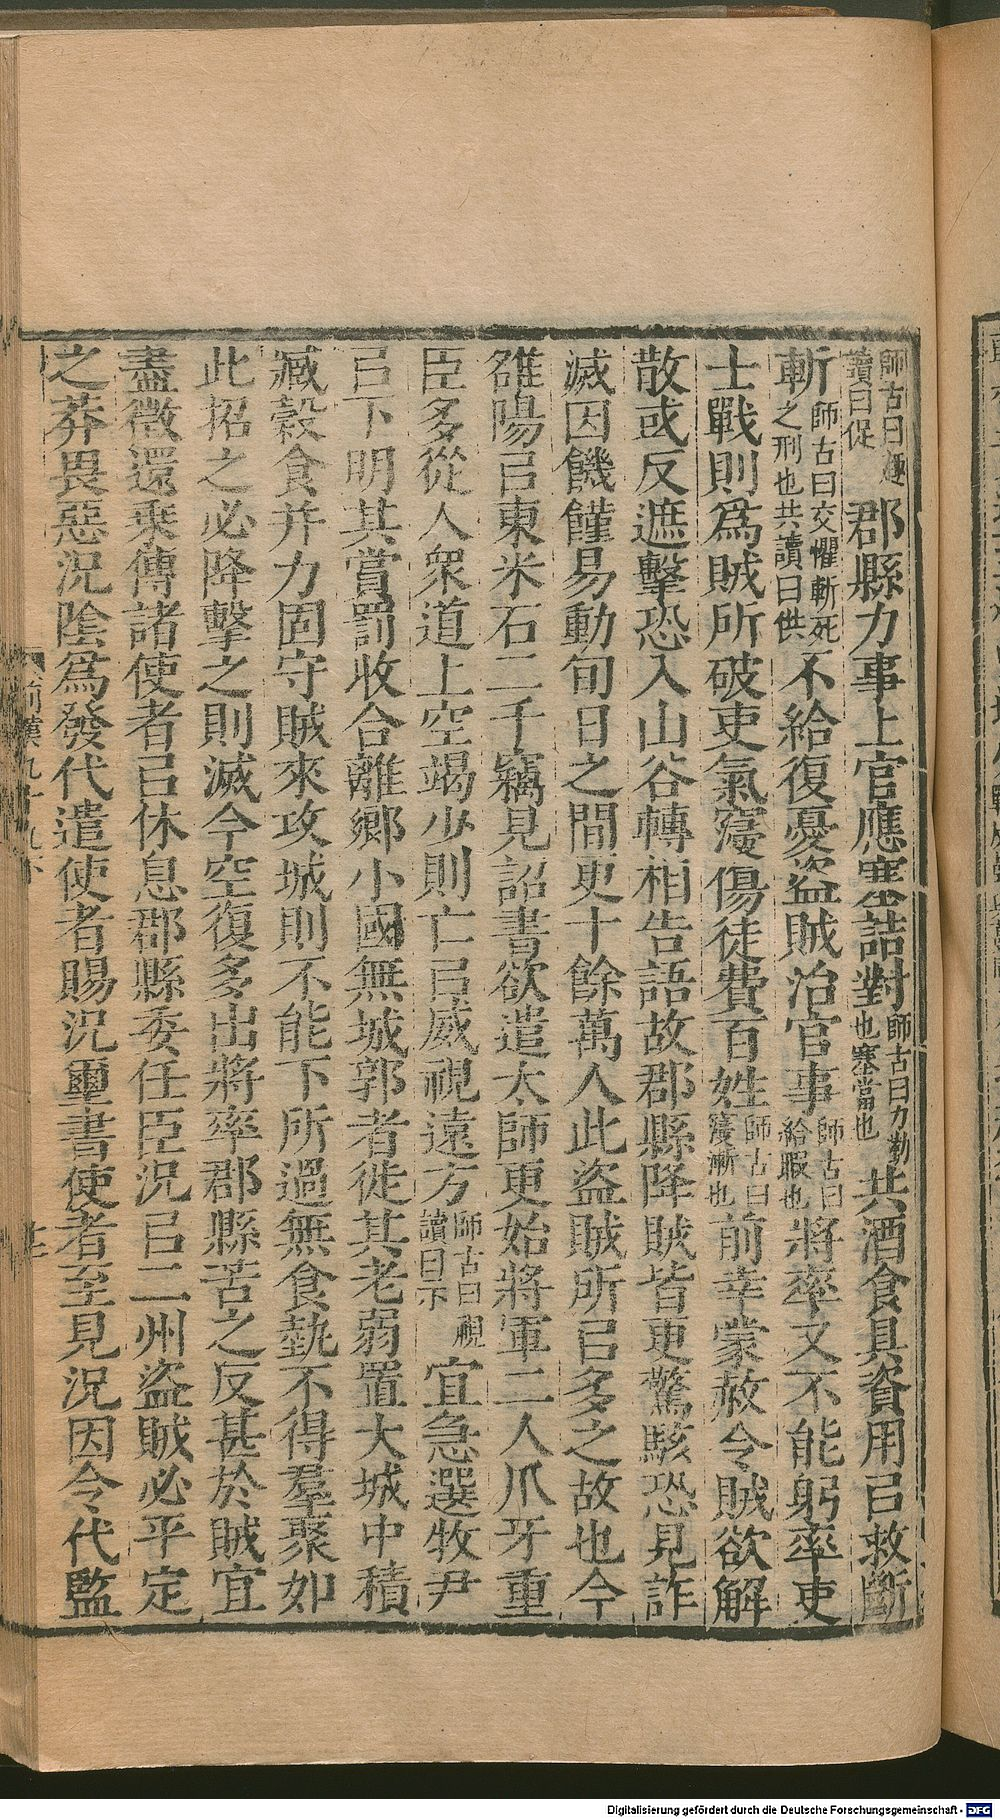 師古曰趣讀曰促郡縣力事上官應塞詰對師古曰力勤也塞當也共酒食具資用㠯救斷
斬師古曰交懼斬死之刑也共讀曰供不給復憂盜賊治官事師古曰給暇也將率又不能躬率吏
士戰則爲賊所破吏氣寖傷徒費百姓師古曰寖漸也前幸蒙赦令賊欲解
散或反遮擊恐入山谷轉相告語故郡縣降賊皆更驚駭恐見詐
滅因饑饉易動旬日之間更十餘萬人此盜賊所㠯多之故也今
雒陽㠯東米石二千竊見詔書欲遣太師更始將軍二人爪牙重
臣多從人衆道上空竭少則亡㠯威視遠方師古曰視讀曰示宜急選牧尹
㠯下明其賞罰收合離鄉小國無城郭者徙其老弱置大城中積
臧穀食并力固守賊來攻城則不能下所過無食埶不得羣聚如
此招之必降擊之則滅今空復多出將率郡縣苦之反甚於賊宜
盡徵還乘傳諸使者㠯休息郡縣委任臣況㠯二州盜賊必平定
之莽畏惡況陰爲發代遣使者賜況璽書使者至見況因令代監
前漢九十九下
Digitalisierung gefördert durch die Deutsche Forschungsgemeinschaft - DFG